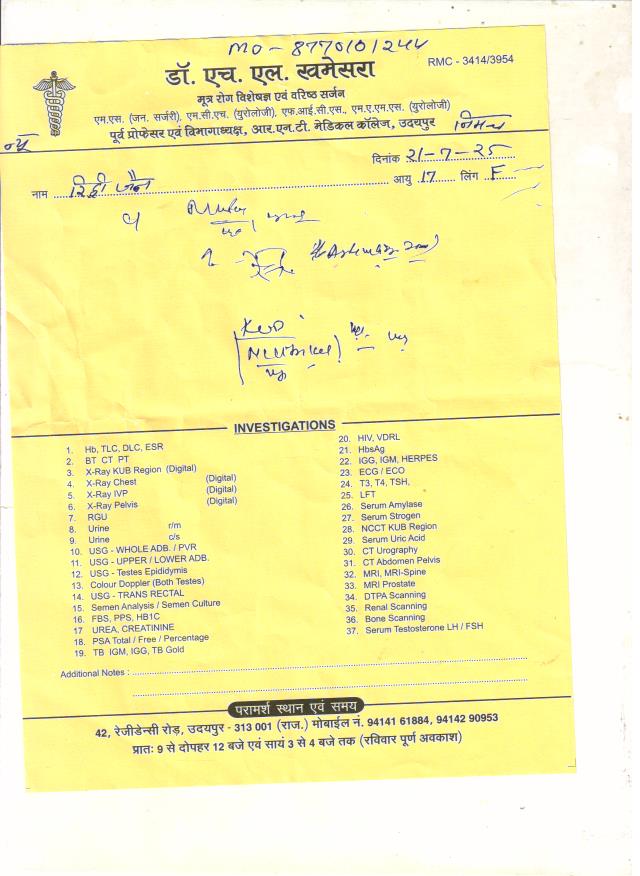 MO - 8770101244
RMC - 3414/3954
डॉ. एच. एल. खमेसरा
मूत्र रोग विशेषज्ञ एवं वरिष्ठ सर्जन
एम.एस. (जन. सर्जरी), एम.सी.एच. (युरोलोजी), एफ.आई.सी.एस., एम.ए.एम.एस. (युरोलोजी)
पूर्व प्रोफेसर एवं विभागाध्यक्ष, आर.एन.टी. मेडिकल कॉलेज, उदयपुर
दिनांक 21-7-25
नाम जैन आयु 17 लिंग F
KUB
INVESTIGATIONS
1. Hb, TLC, DLC, ESR
2. BT CT PT
3. X-Ray KUB Region (Digital)
4. X-Ray Chest (Digital)
5. X-Ray IVP (Digital)
6. X-Ray Pelvis (Digital)
7. RGU
8. Urine r/m
9. Urine c/s
10. USG - WHOLE ADB. / PVR
11. USG - UPPER / LOWER ADB.
12. USG - Testes Epididymis
13. Colour Doppler (Both Testes)
14. USG - TRANS RECTAL
15. Semen Analysis / Semen Culture
16. FBS, PPS, HB1C
17 UREA, CREATININE
18. PSA Total / Free / Percentage
19. TB IGM, IGG, TB Gold
20. HIV, VDRL
21. HbsAg
22. IGG, IGM, HERPES
23. ECG / ECO
24. T3, T4, TSH,
25. LFT
26. Serum Amylase
27. Serum Strogen
28. NCCT KUB Region
29. Serum Uric Acid
30. CT Urography
31. CT Abdomen Pelvis
32. MRI, MRI-Spine
33. MRI Prostate
34. DTPA Scanning
35. Renal Scanning
36. Bone Scanning
37. Serum Testosterone LH / FSH
Additional Notes :
परामर्श स्थान एवं समय
42, रेजीडेन्सी रोड़, उदयपुर - 313 001 (राज.) मोबाईल नं. 94141 61884, 94142 90953
प्रातः 9 से दोपहर 12 बजे एवं सायं 3 से 4 बजे तक (रविवार पूर्ण अवकाश)